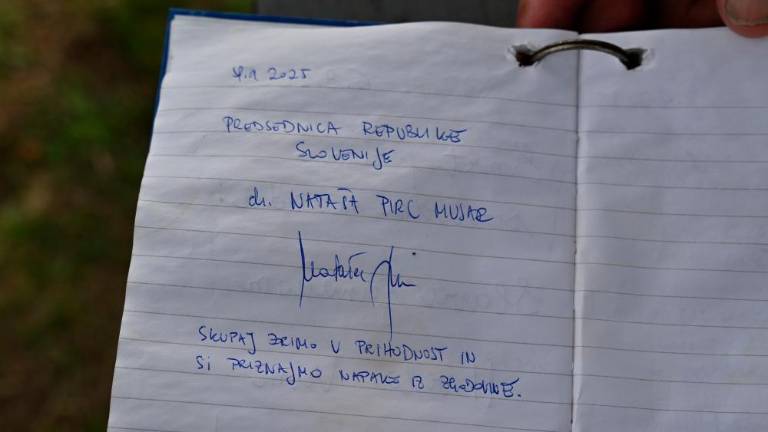 2025
PREDSEDNICA REPUBLIKE
SLOVENIJE
dr. NATAŠA PIRC MUSAR
SKUPAJ ZRIMO V PRIHODNOST IN
SI PRIZNAJMO NAPAKE IZ ZGODOVINE.